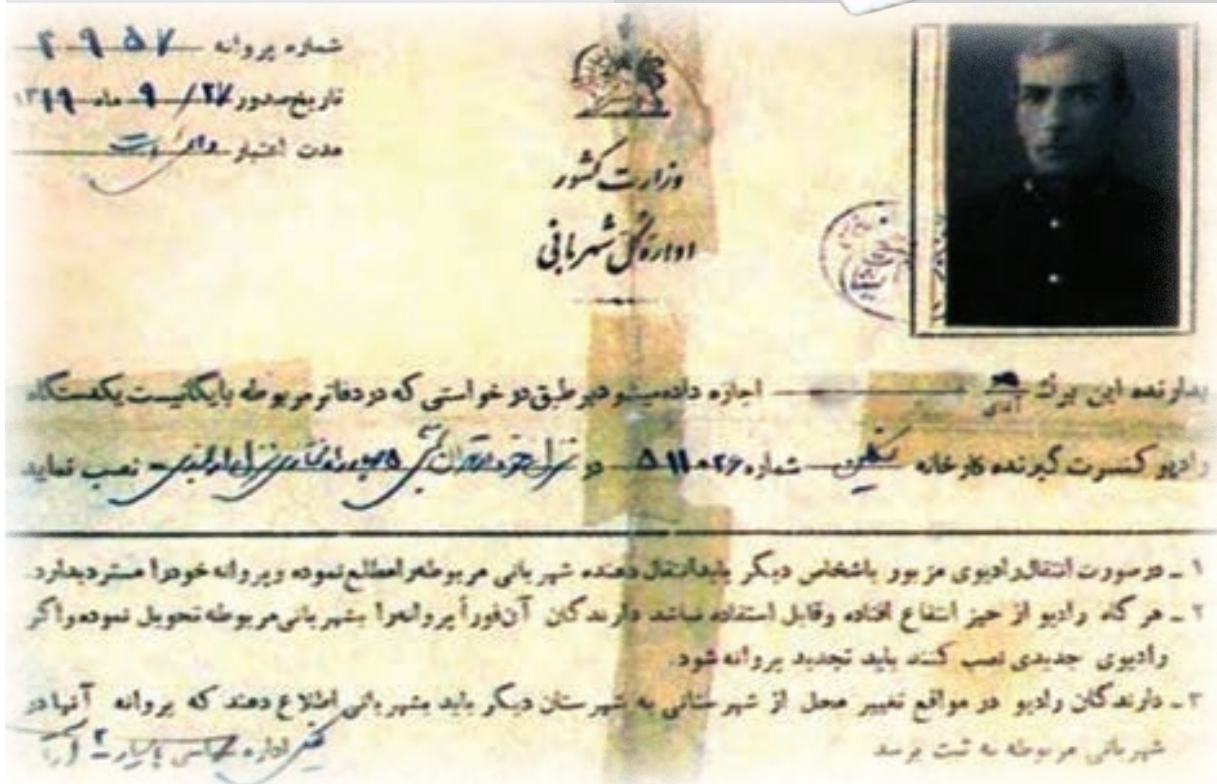 شماره پروانه ۴۹۵۷
تاریخ صدور ۲۷/ ۹ ماه ۱۳۱۹
مدت اعتبار
وزارت کشور
اداره کل شهربانی
بدارنده این برگ آقای اجازه داده میشود بر طبق درخواستی که در دفاتر مربوطه بایگانیست یکدستگاه
رادیو کنسرت گیرنده کارخانه شماره ۵۱۱۰۲۶ در نصب نماید
۱ ـ در صورت انتقال رادیوی مزبور باشخاص دیگر باید انتقال دهنده شهربانی مربوطه را مطلع نموده و پروانه خود را مسترد بدارد.
۲ ـ هر گاه رادیو از حیز انتفاع افتاده و قابل استفاده نباشد دارندگان آن فوراً پروانه را بشهربانی مربوطه تحویل نموده و اگر
رادیوی جدیدی نصب کنند باید تجدید پروانه شود.
۳ ـ دارندگان رادیو در مواقع تغییر محل از شهرستانی به شهرستان دیگر باید بشهربانی اطلاع دهند که پروانه آنها در
شهربانی مربوطه به ثبت برسد
اداره